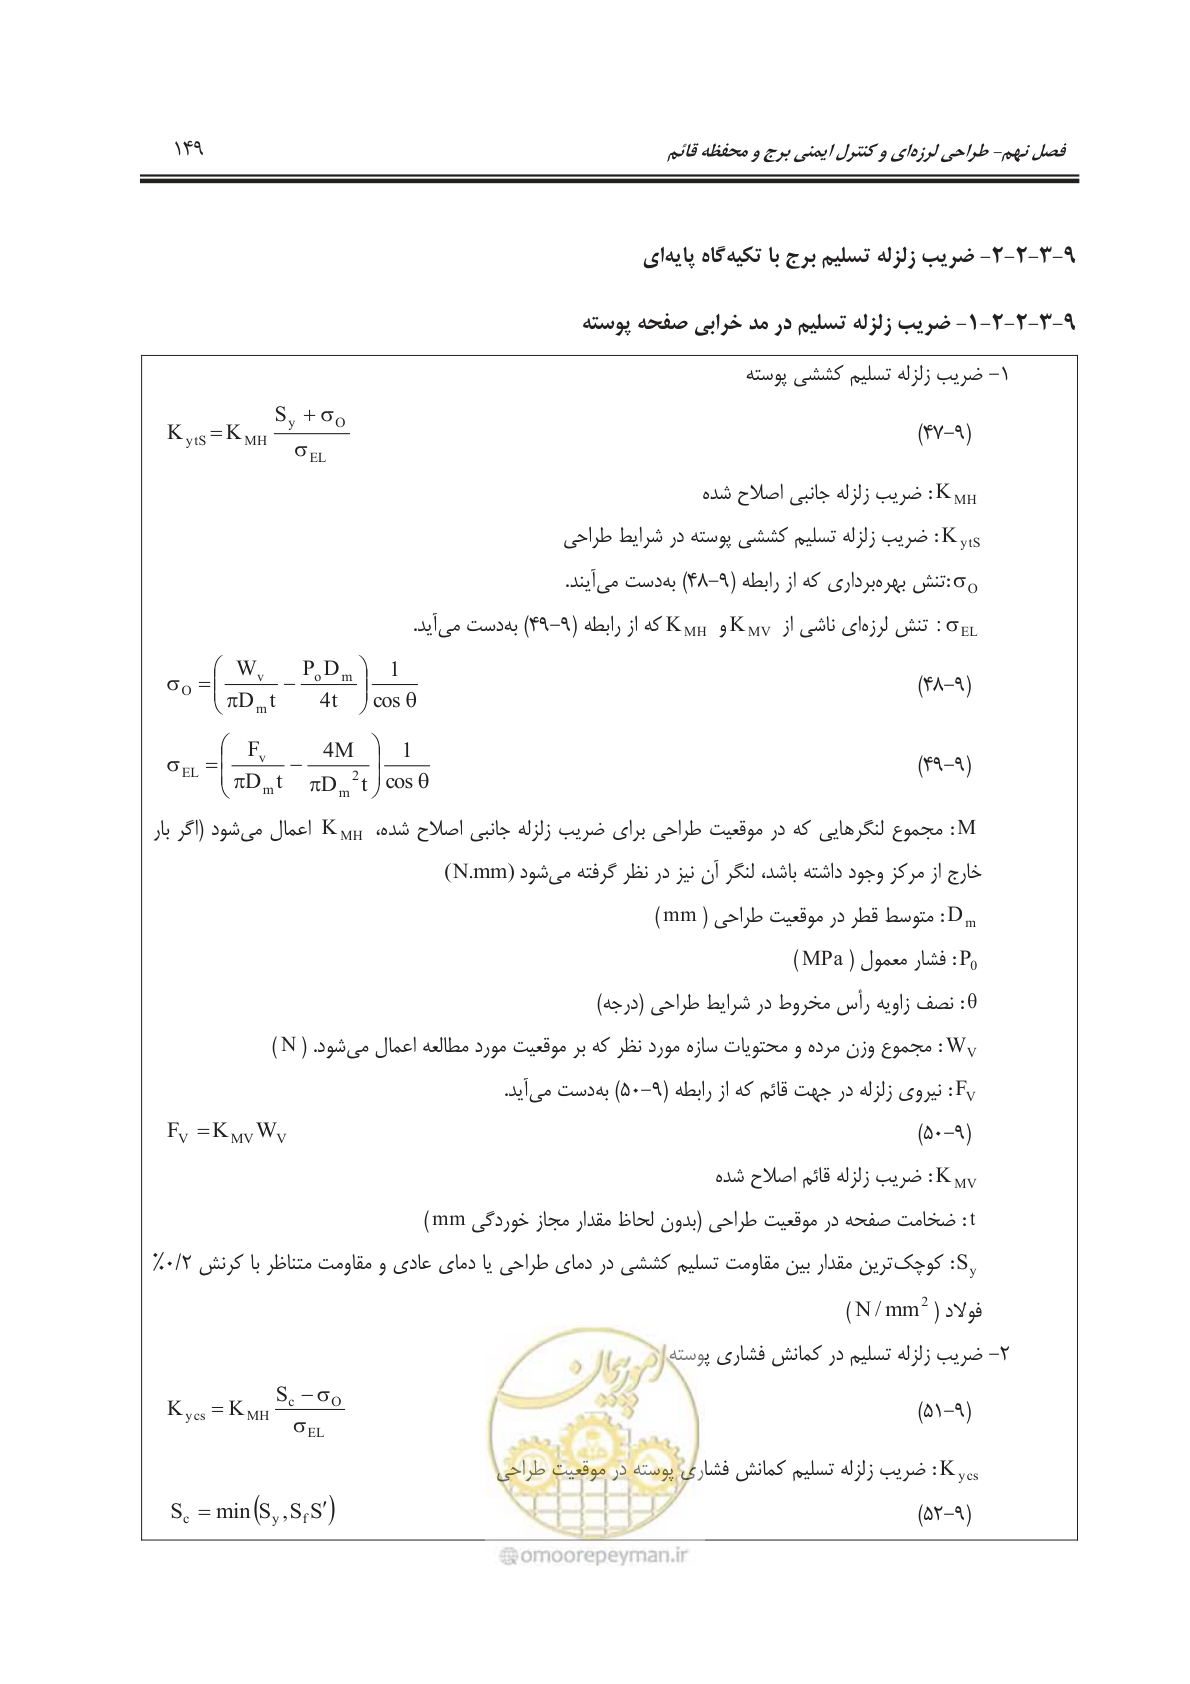 فصل نهم- طراحی لرزه‌ای و کنترل ایمنی برج و محفظه قائم ۱۴۹
۹-۳-۲-۲- ضریب زلزله تسلیم برج با تکیه‌گاه پایه‌ای
۹-۳-۲-۲-۱- ضریب زلزله تسلیم در مد خرابی صفحه پوسته
۱- ضریب زلزله تسلیم کششی پوسته
(۹-۴۷) K_ytS = K_MH (S_y + σ_O) / σ_EL
K_MH: ضریب زلزله جانبی اصلاح شده
K_ytS: ضریب زلزله تسلیم کششی پوسته در شرایط طراحی
σ_O: تنش بهره‌برداری که از رابطه (۹-۴۸) به‌دست می‌آیند.
σ_EL: تنش لرزه‌ای ناشی از K_MV و K_MH که از رابطه (۹-۴۹) به‌دست می‌آید.
(۹-۴۸) σ_O = (W_v / πD_m t − P_o D_m / 4t) 1 / cos θ
(۹-۴۹) σ_EL = (F_v / πD_m t − 4M / πD_m² t) 1 / cos θ
M: مجموع لنگرهایی که در موقعیت طراحی برای ضریب زلزله جانبی اصلاح شده، K_MH اعمال می‌شود (اگر بار
خارج از مرکز وجود داشته باشد، لنگر آن نیز در نظر گرفته می‌شود (N.mm)
D_m: متوسط قطر در موقعیت طراحی (mm)
P_0: فشار معمول (MPa)
θ: نصف زاویه رأس مخروط در شرایط طراحی (درجه)
W_V: مجموع وزن مرده و محتویات سازه مورد نظر که بر موقعیت مورد مطالعه اعمال می‌شود. (N)
F_V: نیروی زلزله در جهت قائم که از رابطه (۹-۵۰) به‌دست می‌آید.
(۹-۵۰) F_V = K_MV W_V
K_MV: ضریب زلزله قائم اصلاح شده
t: ضخامت صفحه در موقعیت طراحی (بدون لحاظ مقدار مجاز خوردگی mm)
S_y: کوچک‌ترین مقدار بین مقاومت تسلیم کششی در دمای طراحی یا دمای عادی و مقاومت متناظر با کرنش ۰/۲٪
فولاد (N/mm²)
۲- ضریب زلزله تسلیم در کمانش فشاری پوسته
(۹-۵۱) K_ycs = K_MH (S_c − σ_O) / σ_EL
K_ycs: ضریب زلزله تسلیم کمانش فشاری پوسته در موقعیت طراحی
(۹-۵۲) S_c = min(S_y, S_f S′)
امور پیمان
@omoorepeyman.ir